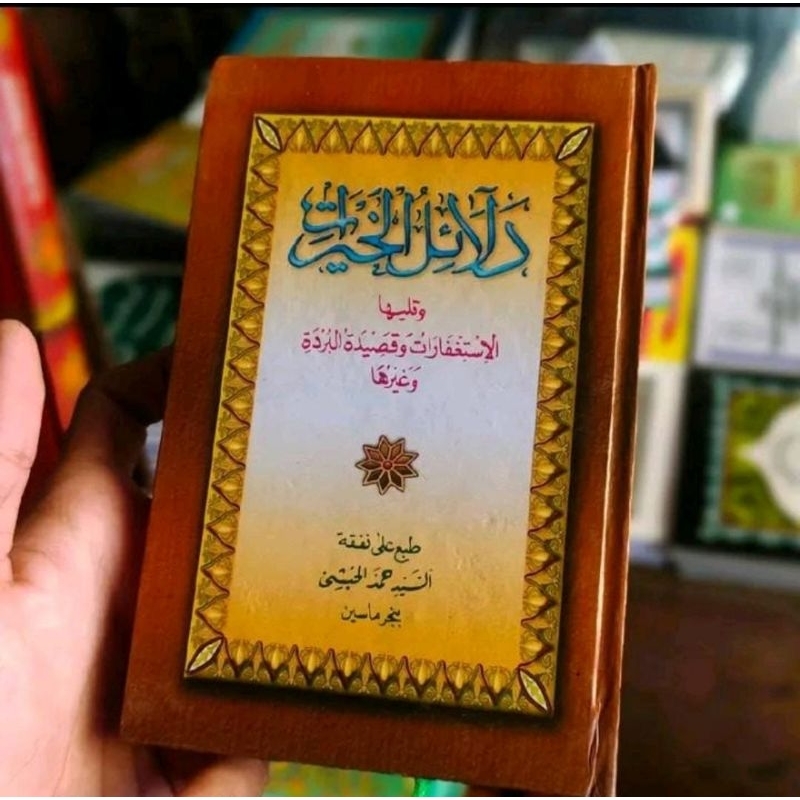 دَلَآئِلُ الْخَيْرَاتِ
وتليها
الاِسْتِغْفَارَاتُ وَقَصِيْدَةُ الْبُرْدَةِ
وَغَيْرُهَا
طبع على نفقة
السَّيِّدِ حمد الحبشي
بنجرماسين